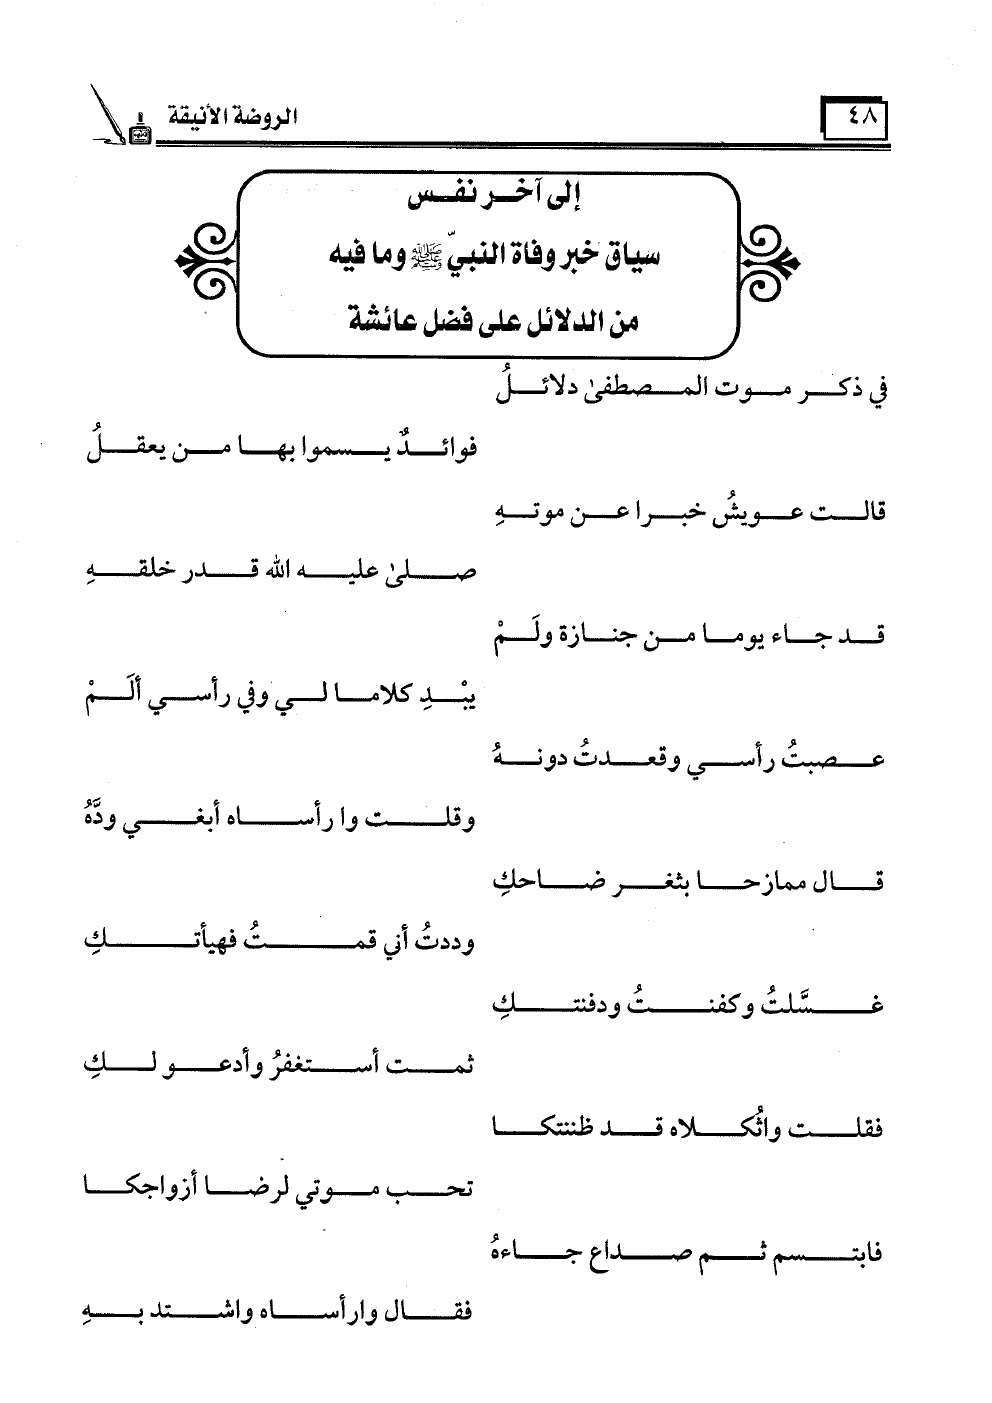 ٤٨
الروضة الأنيقة
إلى آخر نفس
سياق خبر وفاة النبيّ ﷺ وما فيه
من الدلائل على فضل عائشة
في ذكر موت المصطفىٰ دلائلُ
فوائدٌ يسموا بها من يعقلُ
قالت عويشُ خبرا عن موتهِ
صلىٰ عليه الله قدر خلقهِ
قد جاء يوما من جنازة ولَمْ
يبْدِ كلاما لي وفي رأسي ألَمْ
عصبتُ رأسي وقعدتُ دونهُ
وقلت وا رأساه أبغي ودَّهُ
قال ممازحا بثغر ضاحكِ
وددتُ أني قمتُ فهيأتكِ
غسَّلتُ وكفنتُ ودفنتكِ
ثمت أستغفرُ وأدعو لكِ
فقلت واثُكلاه قد ظننتكا
تحب موتي لرضا أزواجكا
فابتسم ثم صداع جاءهُ
فقال وارأساه واشتد بهِ